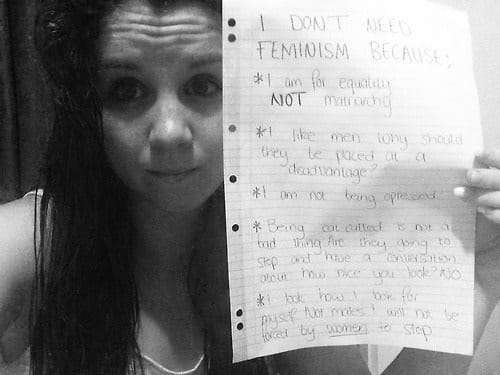 I DON'T NEED
FEMINISM BECAUSE:
* I am for equality
NOT matriarchy
* I like men. Why should
they be placed at a
disadvantage?
* I am not being opressed.
* Being cat called is not a
bad thing. Are they going to
stop and have a conversation
about how nice you look? NO
* I look how I look for
myself. Not males. I will not be
forced by women to stop